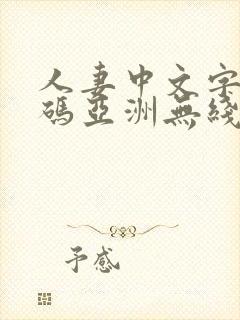 人妻中文字
碼亞洲無綫
予感